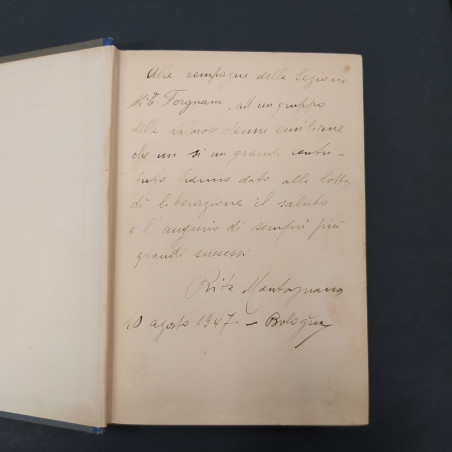 Alle compagne della Sezione
Fornari, ad un gruppo
delle valorose donne emiliane
che un sì un grande contri-
buto hanno dato alla lotta
di liberazione il saluto
e l'augurio di sempre più
grandi successi
Rita Montagnana
10 agosto 1947 - Bologna